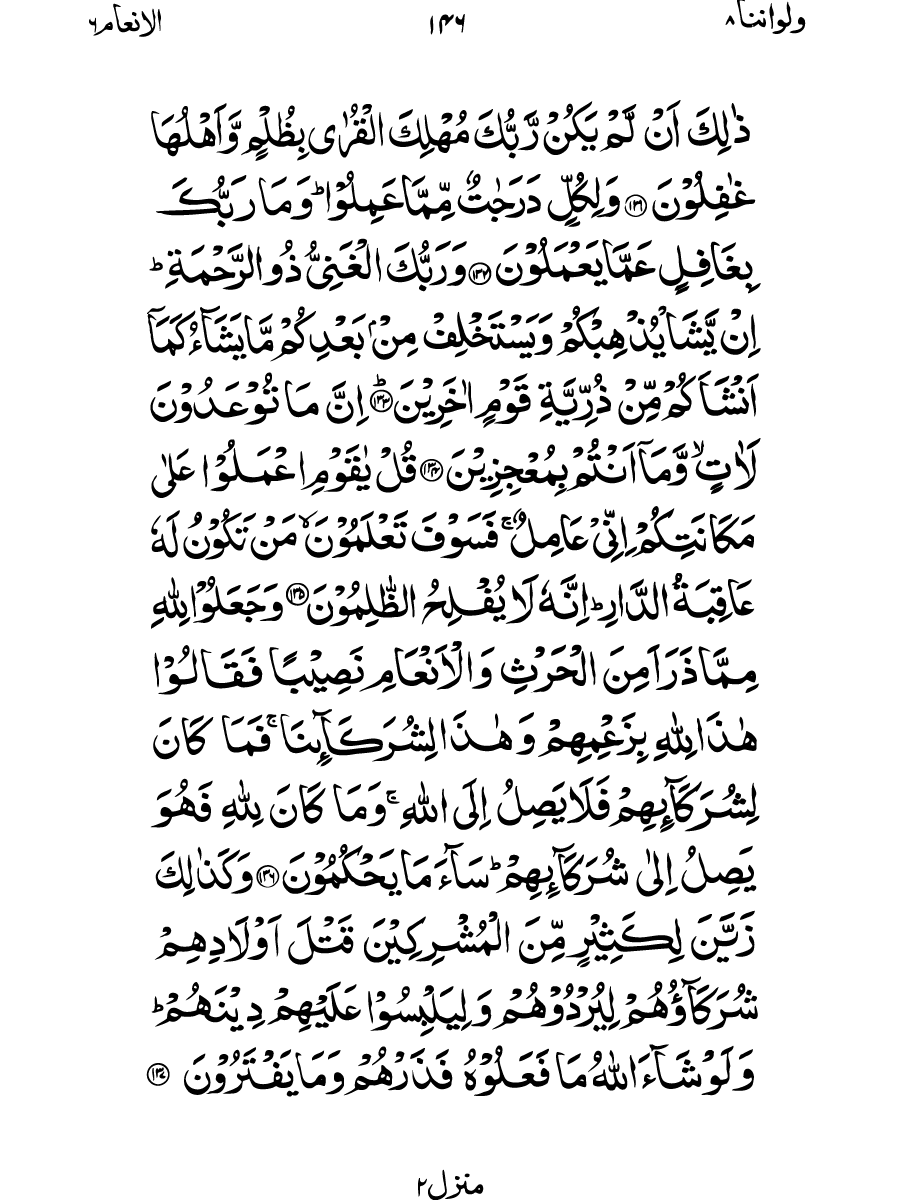 ولواننا٨ ١٤٦ الانعام٦
ذٰلِكَ اَنْ لَّمْ يَكُنْ رَّبُّكَ مُهْلِكَ الْقُرٰى بِظُلْمٍ وَّاَهْلُهَا
غٰفِلُوْنَ ﴿١٣١﴾ وَلِكُلٍّ دَرَجٰتٌ مِّمَّا عَمِلُوْا ؕ وَمَا رَبُّكَ
بِغَافِلٍ عَمَّا يَعْمَلُوْنَ ﴿١٣٢﴾ وَرَبُّكَ الْغَنِىُّ ذُو الرَّحْمَةِ ؕ
اِنْ يَّشَاْ يُذْهِبْكُمْ وَيَسْتَخْلِفْ مِنْۢ بَعْدِكُمْ مَّا يَشَآءُ كَمَاۤ
اَنْشَاَكُمْ مِّنْ ذُرِّيَّةِ قَوْمٍ اٰخَرِيْنَ ﴿١٣٣﴾ؕ اِنَّ مَا تُوْعَدُوْنَ
لَاٰتٍ ۙ وَّمَاۤ اَنْتُمْ بِمُعْجِزِيْنَ ﴿١٣٤﴾ قُلْ يٰقَوْمِ اعْمَلُوْا عَلٰى
مَكَانَتِكُمْ اِنِّىْ عَامِلٌ ۚ فَسَوْفَ تَعْلَمُوْنَ ۙ مَنْ تَكُوْنُ لَهٗ
عَاقِبَةُ الدَّارِ ؕ اِنَّهٗ لَا يُفْلِحُ الظّٰلِمُوْنَ ﴿١٣٥﴾ وَجَعَلُوْا لِلّٰهِ
مِمَّا ذَرَاَ مِنَ الْحَرْثِ وَالْاَنْعَامِ نَصِيْبًا فَقَالُوْا
هٰذَا لِلّٰهِ بِزَعْمِهِمْ وَهٰذَا لِشُرَكَآئِنَا ۚ فَمَا كَانَ
لِشُرَكَآئِهِمْ فَلَا يَصِلُ اِلَى اللّٰهِ ۚ وَمَا كَانَ لِلّٰهِ فَهُوَ
يَصِلُ اِلٰى شُرَكَآئِهِمْ ؕ سَآءَ مَا يَحْكُمُوْنَ ﴿١٣٦﴾ وَكَذٰلِكَ
زَيَّنَ لِكَثِيْرٍ مِّنَ الْمُشْرِكِيْنَ قَتْلَ اَوْلَادِهِمْ
شُرَكَآؤُهُمْ لِيُرْدُوْهُمْ وَلِيَلْبِسُوْا عَلَيْهِمْ دِيْنَهُمْ ؕ
وَلَوْ شَآءَ اللّٰهُ مَا فَعَلُوْهُ فَذَرْهُمْ وَمَا يَفْتَرُوْنَ ﴿١٣٧﴾
منزل٢